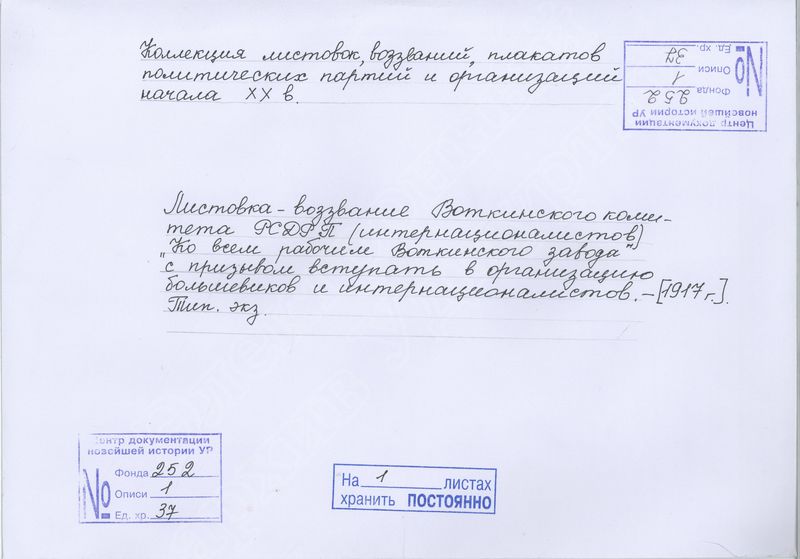 Коллекция листовок, воззваний, плакатов
политических партий и организаций
начала XX в.
Центр документации
новейшей истории УР
Фонда 252
Описи 1
№
Ед. хр. 37
Листовка - воззвание Воткинского коми-
тета РСДРП (интернационалистов)
„Ко всем рабочим Воткинского завода"
с призывом вступать в организацию
большевиков и интернационалистов. – [1917 г.].
Тип. экз.
Центр документации
новейшей истории УР
Фонда 252
Описи 1
№
Ед. хр. 37
На 1 листах
хранить ПОСТОЯННО